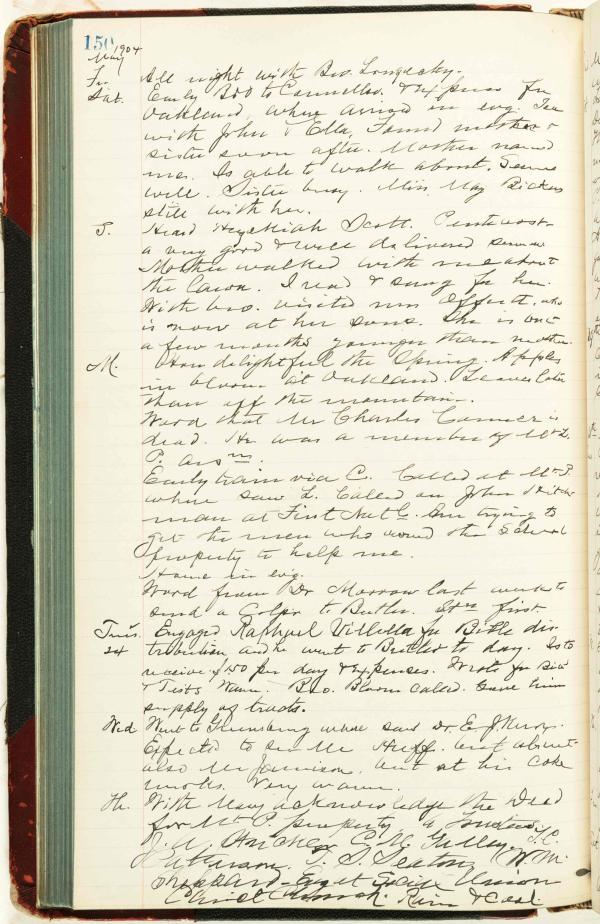 150
May 1904
Fr. All night with Bro.
Sat. Early B&O to Connells. & Express for
Oakland, where arrived in evg. Tea
with John & Ella, found mother &
sister soon after. Mother named
me. Is able to walk about. Seems
well. Sister busy. Miss May
still with her.
S. Heard Hezekiah Scott. Pentecost
a very good & well delivered sermon
Mother walked with me about
the lawn. I read & sung for her.
With bro. visited Mrs Offutt, who
is now at her sons. She is but
a few months younger than mother.
M. How delightful the Spring. Apples
in bloom at Oakland. Leaves later
than off the mountain.
Word that Mr Charles is
dead. He was a member of Mt L.
P.
Early train via C. Called at Mt P
where saw L. Called on John
man at First Nat'l. Am trying to
get the men who owned the School
property to help me.
Home in evg.
Word from Dr Morrow last week to
send a Colpr to Butler. first.
Tues. Engaged Raphael Villella for Bible dis
24 tribution and he went to Butler to day. Is to
receive $1.50 per day & expenses. Wrote for
& Tests Warm. Bro. Bloom called. Gave him
supply of tracts.
Wed Went to Greensburg where saw Dr. E. J. Knox.
Expected to see Mr Huff, but absent
also Mr Jamison, but at his coke
works. Very warm.
Th. With Mary acknowledge the Deed
for Mt P property to
J. A. C. M. T. C.
T. S. Seaton, W. M.
Sheppard
Church. Rain & Cool.